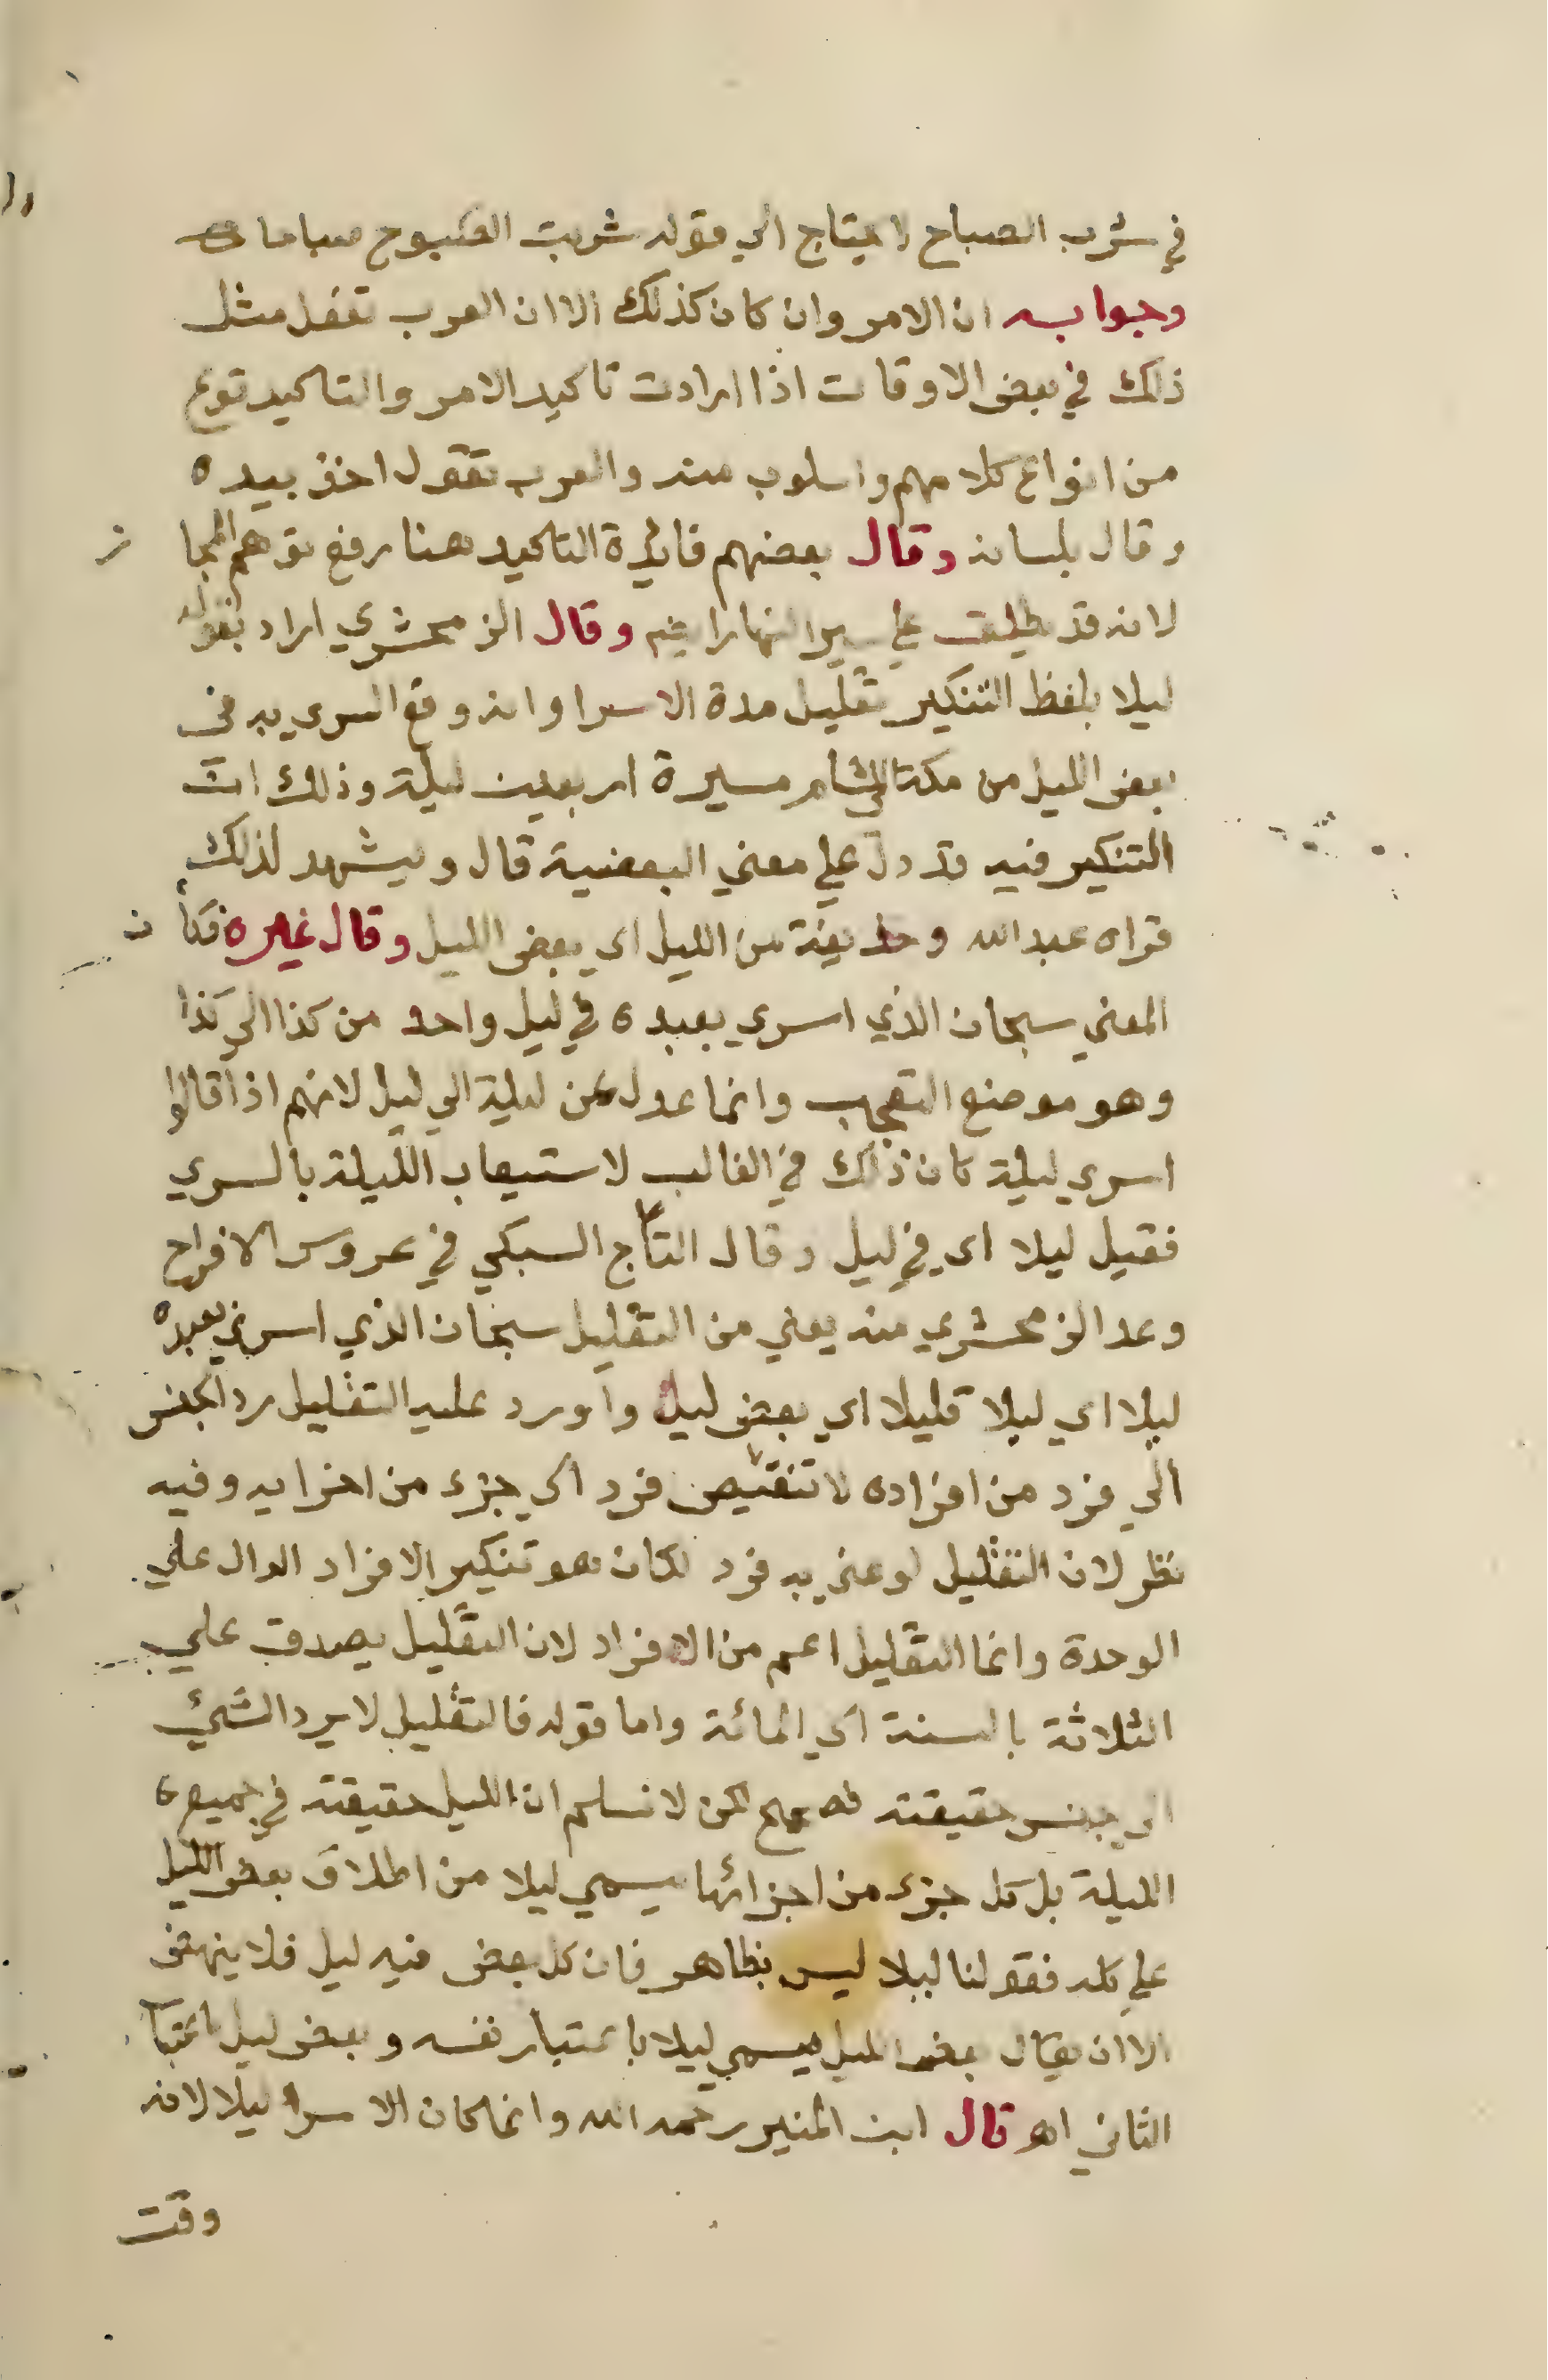 في شرب الصباح لا يحتاج الي قوله شربت الصبوح صباحا
وجوابه ان الامر وان كان كذلك الا ان العرب تفعل مثل
ذلك في بعض الاوقات اذا ارادت تاكيد الامر والتاكيد نوع
من انواع كلامهم واسلوب منه والعرب تقول اخذ بيده
وقال بلسانه وقال بعضهم فائدة التاكيد هنا رفع توهم المجاز
لانه قد يطلق علي سير النهار ايضا وقال الزمخشري اراد بقوله
ليلا بلفظ التنكير تقليل مدة الاسرا وانه وقع السري به في
بعض الليل من مكة الي الشام مسيرة اربعين ليلة وذلك ان
التنكير فيه قد دل علي معني البعضية قال ويشهد لذلك
قراه عبد الله وحذيفة من الليل اي بعض الليل وقال غيره فكان
المعني سبحان الذي اسري بعبده في ليل واحد من كذا الي كذا
وهو موضع التعجب وانما عدل عن ليلة الي ليل لانهم اذا قالوا
اسري ليلة كان ذلك في الغالب لاستيعاب الليلة بالسري
فقيل ليلا اي في ليل وقال التاج السبكي في عروس الافراح
وعد الزمخشري منه يعني من التقليل سبحان الذي اسري بعبده
ليلا اي ليلا قليلا اي بعض ليل واورد عليه التقليل رد الجنس
الي فرد من افراده لا تنقيص فرد الي جزء من اجزايه وفيه
نظر لان التقليل لو عني به فرد لكان هو تنكير الافراد الدال علي
الوحدة وانما التقليل اعم من الافراد لان التقليل يصدق علي
الثلاثة بالسنة الي المائة واما قوله فالتقليل لا يرد الشئ
الي جنس حقيقته فصحيح لكن لا نسلم ان الليل حقيقته في جميع
الليلة بل كل جزء من اجزائها يسمي ليلا من اطلاق بعض الليل
علي كله فقولنا ليلا ليس بظاهر فان كل بعض فيه ليل فلا ينهض
الا ان يقال بعض الليل يسمي ليلا باعتبار نفسه وبعض ليل باعتبا
الثاني اهـ قال ابن المنير رحمه الله وانما كان الاسرا ليلا لانه
وقت